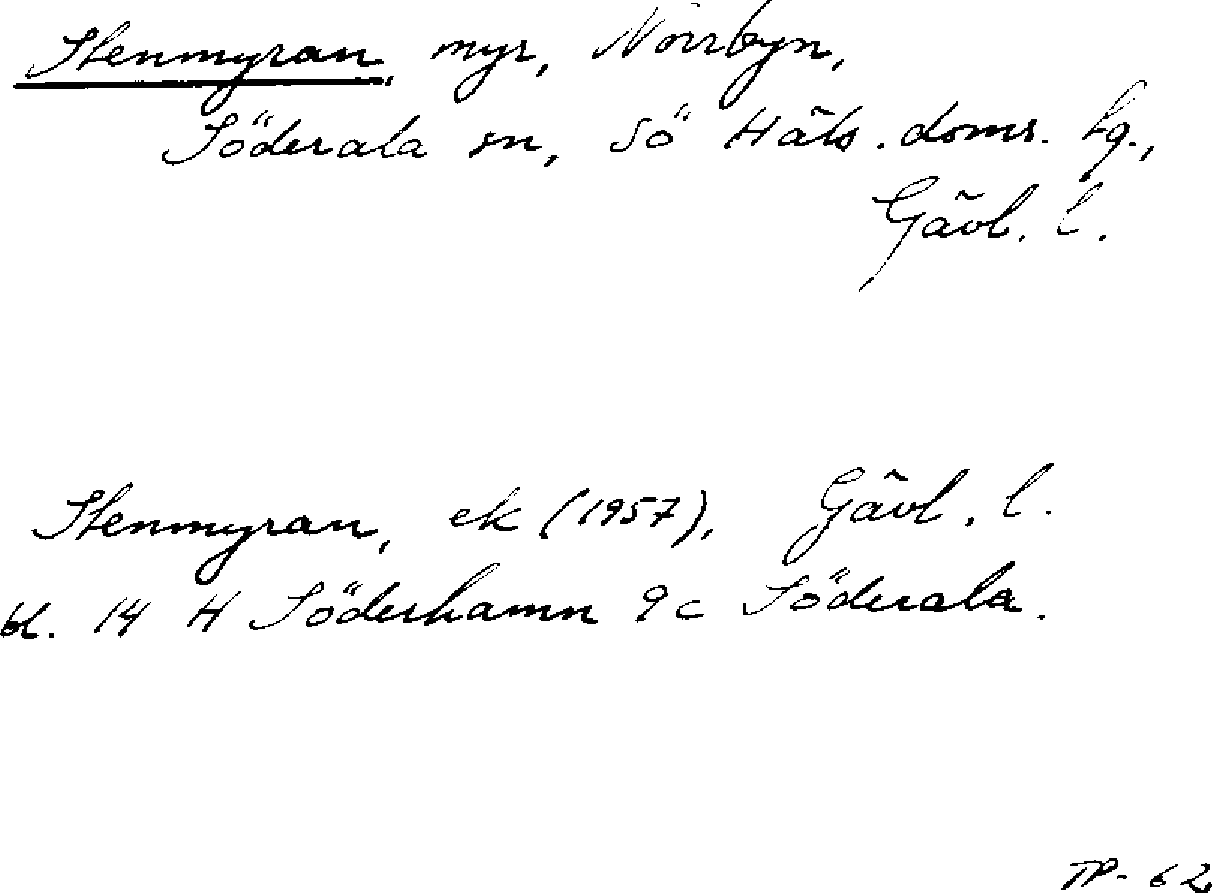 Stenmyran, myr, Norrbyn,
Söderala sn, Sö Häls. doms. hg.,
Gävl. l.
Stenmyran, ek (1957), Gävl. l.
bl. 14 H Söderhamn 9c Söderala.
TP-62